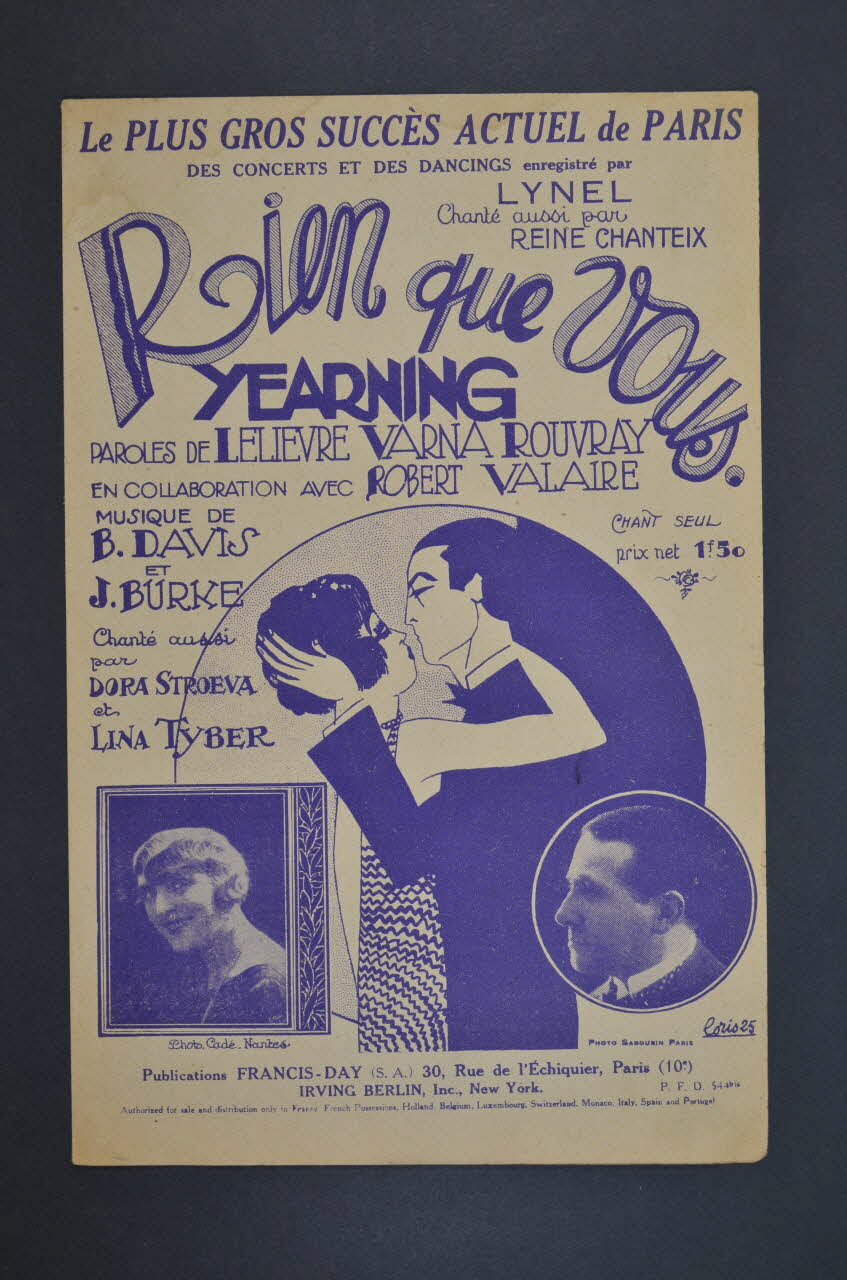 Le PLUS GROS SUCCÈS ACTUEL de PARIS
DES CONCERTS ET DES DANCINGS enregistré par
LYNEL
Chanté aussi par
REINE CHANTEIX
Rien que vous.
YEARNING
PAROLES DE LELIEVRE VARNA ROUVRAY
EN COLLABORATION AVEC ROBERT VALAIRE
MUSIQUE DE
B. DAVIS
ET
J. BURKE
CHANT SEUL
prix net 1f50
Chanté aussi
par
DORA STROEVA
et
LINA TYBER
Photo. Cadé. Nantes
PHOTO SABOURIN PARIS
Loris 25
Publications FRANCIS-DAY (S. A.) 30, Rue de l'Échiquier, Paris (10e)
IRVING BERLIN, Inc., New York.
P. F. D. 544bis
Authorized for sale and distribution only in France, French Possessions, Holland, Belgium, Luxembourg, Switzerland, Monaco, Italy, Spain and Portugal